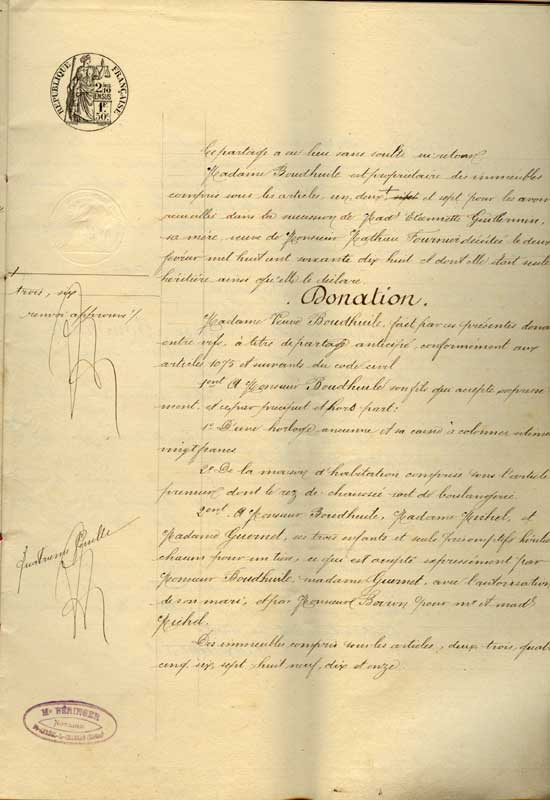 RÉPUBLIQUE FRANÇAISE
2/10 EN SUS
1F 50c
Ce partage a eu lieu sans soulte ni retour
Madame Boudheuile est propriétaire des immeubles
compris sous les articles un, deux + sept et sept pour les avoir
recueillis dans la succession de Made Etiennette
sa mère, veuve de Monsieur Mathieu Fournier décédée le deux
février mil huit cent soixante dix huit et dont elle était seule
héritière ainsi qu'elle le déclare.
+
trois, six
renvoi approuvé /.
. Donation.
Madame Veuve Boudheuile, fait par ces présentes dona
entre vifs, à titre de partage anticipé, conformément aux
articles 1075 et suivants du code civil
1ent A Monsieur Boudheuile son fils qui accepte expresse
ment, et ce par préciput et hors part:
1º D'une horloge ancienne et sa caisse à colonnes estimée
vingt francs
2º De la maison d'habitation comprise sous l'article
premier dont le rez de chaussée sert de boulangerie.
2ent A Monsieur Boudheuile, Madame Michel, et
Madame Guernet, ses trois enfants et seuls présomptifs héritiers
chacun pour un tiers, ce qui est accepté expressément par
Monsieur Boudheuile, madame Guernet, avec l'autorisation
de son mari, et par Monsieur pour mr et made
Michel.
Des immeubles compris sous les articles, deux trois, quat
cinq six, sept huit neuf, dix et onze
Me BÉRINGER
NOTAIRE